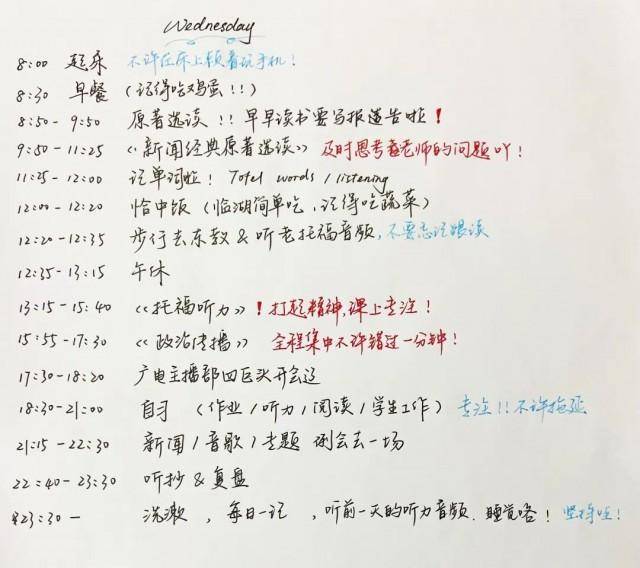 Wednesday
8:00 起床 不许在床上躺着玩手机!
8:30 早餐 (记得吃鸡蛋!!)
8:50-9:50 原著选读!! 早早读书要写报告啦!
9:50-11:25 《新闻经典原著选读》 及时思考老师的问题吖!
11:25-12:00 记单词啦! Tofel words / listening
12:00-12:20 恰中饭 (临湖简单吃,记得吃蔬菜)
12:20-12:35 步行去东教 & 听老托福音频,不要忘记跟读
12:35-13:15 午休
13:15-15:40 《托福听力》! 打起精神,课上专注!
15:55-17:30 《政治传播》 全程集中不许错过一分钟!
17:30-18:20 广电主播部四区头开会
18:30-21:00 自习 (作业/听力/阅读/学生工作) 专注!! 不许拖延
21:15-22:30 新闻/音歌/专题 例会去一场
22:40-23:30 听抄 & 复盘
23:30- 洗漱,每日一记,听前一天的听力音频.睡觉咯! 坚持哇!